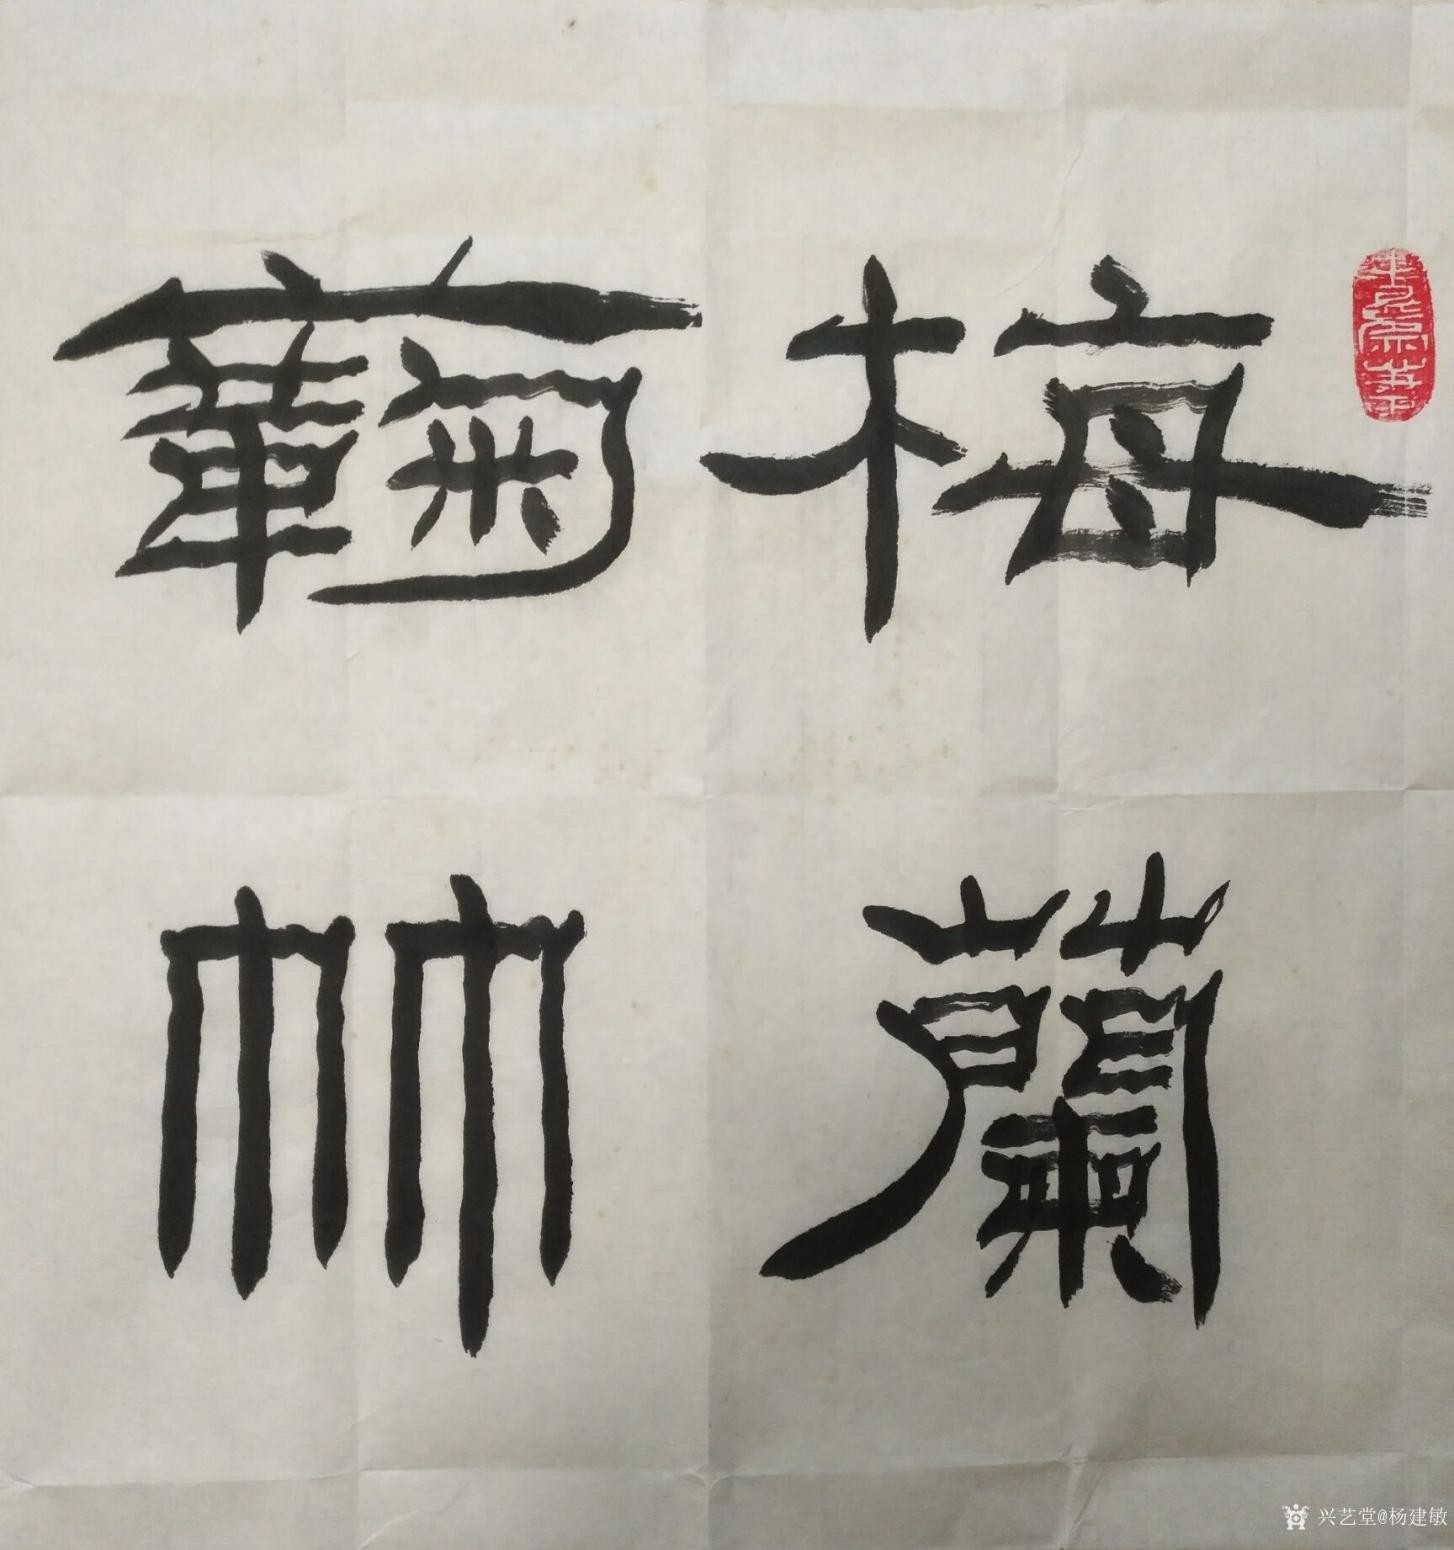 梅蘭
菊竹
兴艺堂@杨建敏